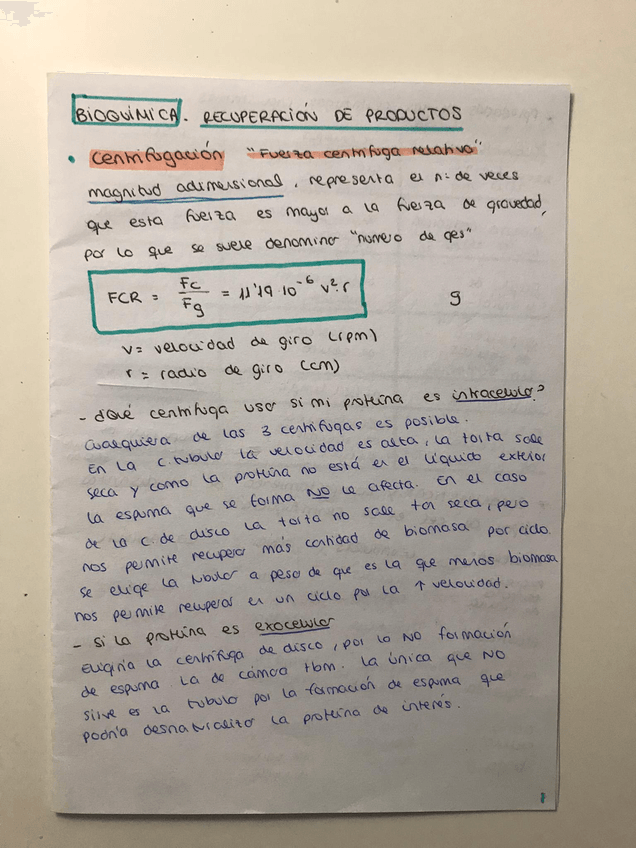 BIOQUÍMICA. RECUPERACIÓN DE PRODUCTOS
• Centrifugación "Fuerza centrifuga relativa"
magnitud adimensional, representa el nº de veces
que esta fuerza es mayor a la fuerza de gravedad,
por lo que se suele denominar "numero de ges"
FCR = Fc / Fg = 11'19 · 10⁻⁶ v² · r
g
v = velocidad de giro (rpm)
r = radio de giro (cm)
- ¿Qué centrifuga uso si mi proteína es intracelular?
Cualquiera de las 3 centrifugas es posible.
En la c. tubular la velocidad es alta, la torta sale
seca y como la proteína no está en el líquido exterior
la espuma que se forma NO le afecta. En el caso
de la c. de disco la torta no sale tan seca, pero
nos permite recuperar más cantidad de biomasa por ciclo.
Se elige la tubular a pesar de que es la que menos biomasa
nos permite recuperar en un ciclo por la ↑ velocidad.
- Si la proteína es exocelular
Eligiría la centrífuga de disco, por la NO formación
de espuma. La de cámara tbm. La única que NO
sirve es la tubular por la formación de espuma que
podría desnaturalizar la proteína de interés.